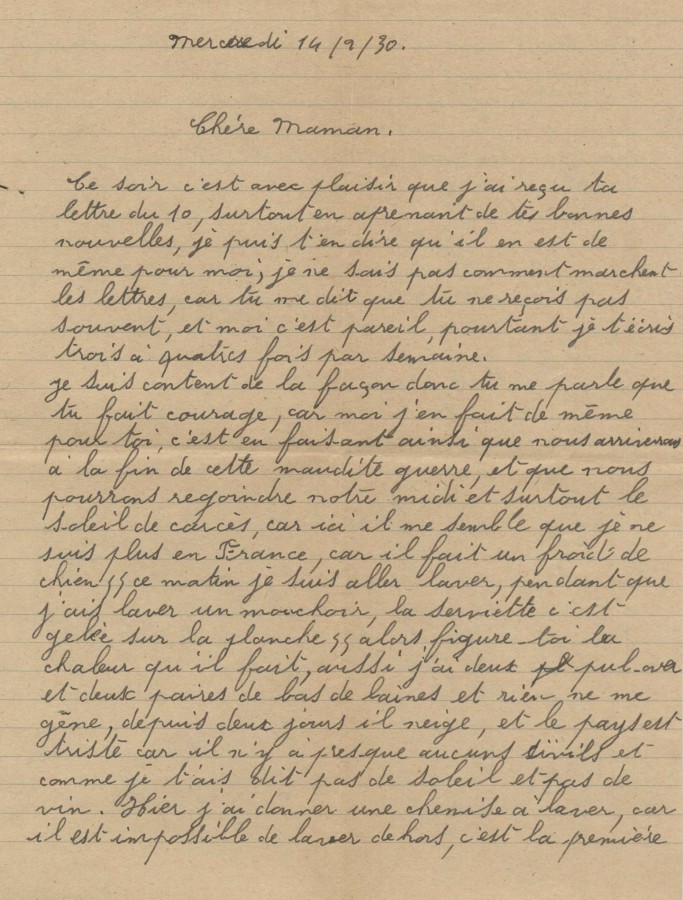 Mercredi 14/2/30.
Chère Maman.
Ce soir c'est avec plaisir que j'ai reçu ta
lettre du 10, surtout en aprenant de tes bonnes
nouvelles, je puis t'en dire qu'il en est de
même pour moi, je ne sais pas comment marchent
les lettres, car tu me dit que tu ne reçois pas
souvent, et moi c'est pareil, pourtant je t'écris
trois à quatres fois par semaine.
je suis content de la façon donc tu me parle que
tu fait courage, car moi j'en fait de même
pour toi, c'est en faisant ainsi que nous arriverons
à la fin de cette maudite guerre, et que nous
pourrons regoindre notre midi et surtout le
soleil de carcès, car ici il me semble que je ne
suis plus en France, car il fait un froid de
chien !! ce matin je suis aller laver, pendant que
j'ais laver un mouchoir, la serviette c'est
gelée sur la planche !! alors figure-toi la
chaleur qu'il fait, aussi j'ai deux pul-over
et deux paires de bas de laines et rien ne me
gêne, depuis deux jours il neige, et le pays est
triste car il n'y a presque aucuns civils et
comme je t'ais dit pas de soleil et pas de
vin. Hier j'ai donner une chemise à laver, car
il est impossible de laver dehors, c'est la première